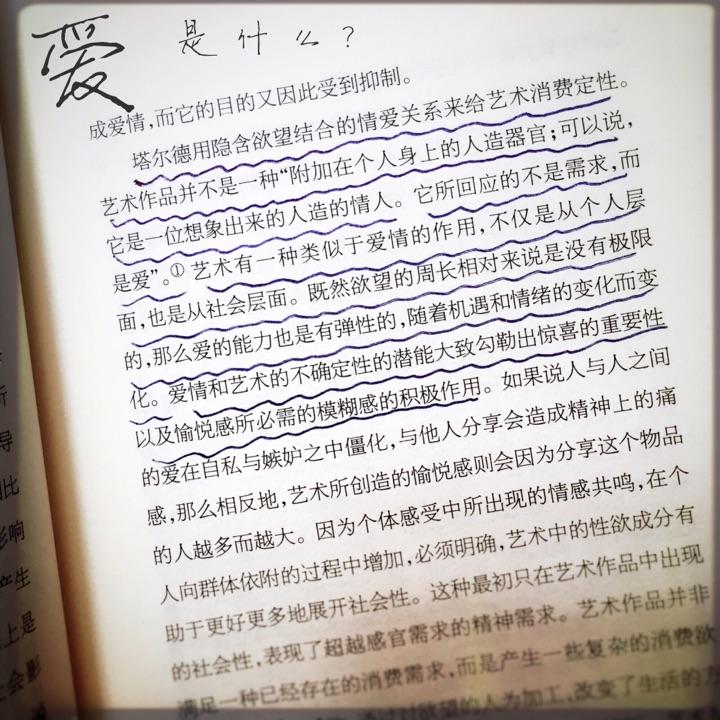 爱 是什么?
成爱情,而它的目的又因此受到抑制。
塔尔德用隐含欲望结合的情爱关系来给艺术消费定性。
艺术作品并不是一种“附加在个人身上的人造器官;可以说,
它是一位想象出来的人造的情人。它所回应的不是需求,而
是爱”。①艺术有一种类似于爱情的作用,不仅是从个人层
面,也是从社会层面。既然欲望的周长相对来说是没有极限
的,那么爱的能力也是有弹性的,随着机遇和情绪的变化而变
化。爱情和艺术的不确定性的潜能大致勾勒出惊喜的重要性
以及愉悦感所必需的模糊感的积极作用。如果说人与人之间
的爱在自私与嫉妒之中僵化,与他人分享会造成精神上的痛
感,那么相反地,艺术所创造的愉悦感则会因为分享这个物品
的人越多而越大。因为个体感受中所出现的情感共鸣,在个
人向群体依附的过程中增加,必须明确,艺术中的性欲成分有
助于更好更多地展开社会性。这种最初只在艺术作品中出现
的社会性,表现了超越感官需求的精神需求。艺术作品并非
满足一种已经存在的消费需求,而是产生一些复杂的消费欲
通过对欲望的人为加工,改变了生活的方
所
导
相比
影响
产生
上是
社会影